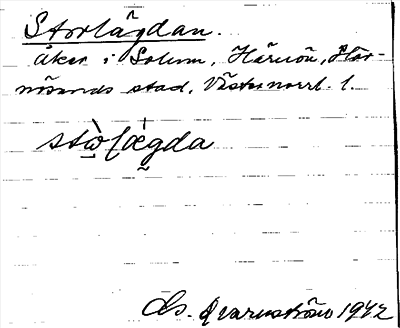 Storlägdan.
åker i Solum, Härnön, Här-
nösands stad, Västernorrl. l.
stò̱ɭǽgda
Av. Qvarnström 1942